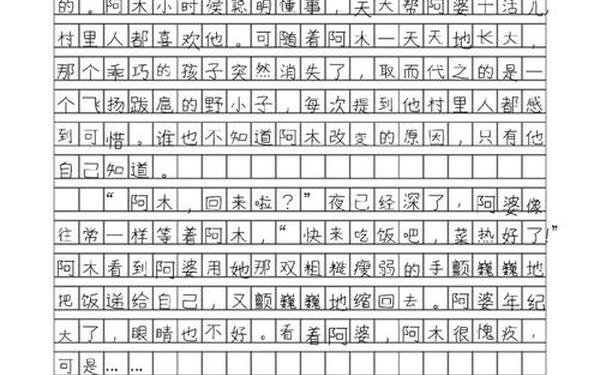 的。阿木小时候聪明懂事，天天帮阿婆干活儿，
村里人都喜欢他。可随着阿木一天天地长大，
那个乖巧的孩子突然消失了，取而代之的是一
个飞扬跋扈的野小子，每次提到他村里人都感
到可惜。谁也不知道阿木改变的原因，只有他
自己知道。
“阿木，回来啦？”夜已经深了，阿婆像
往常一样等着阿木，“快来吃饭吧，菜热好了！”
阿木看到阿婆用她那双粗糙瘦弱的手颤巍巍地
把饭递给自己，又颤巍巍地缩回去。阿婆年纪
大了，眼睛也不好。看着阿婆，阿木很愧疚，
可是……